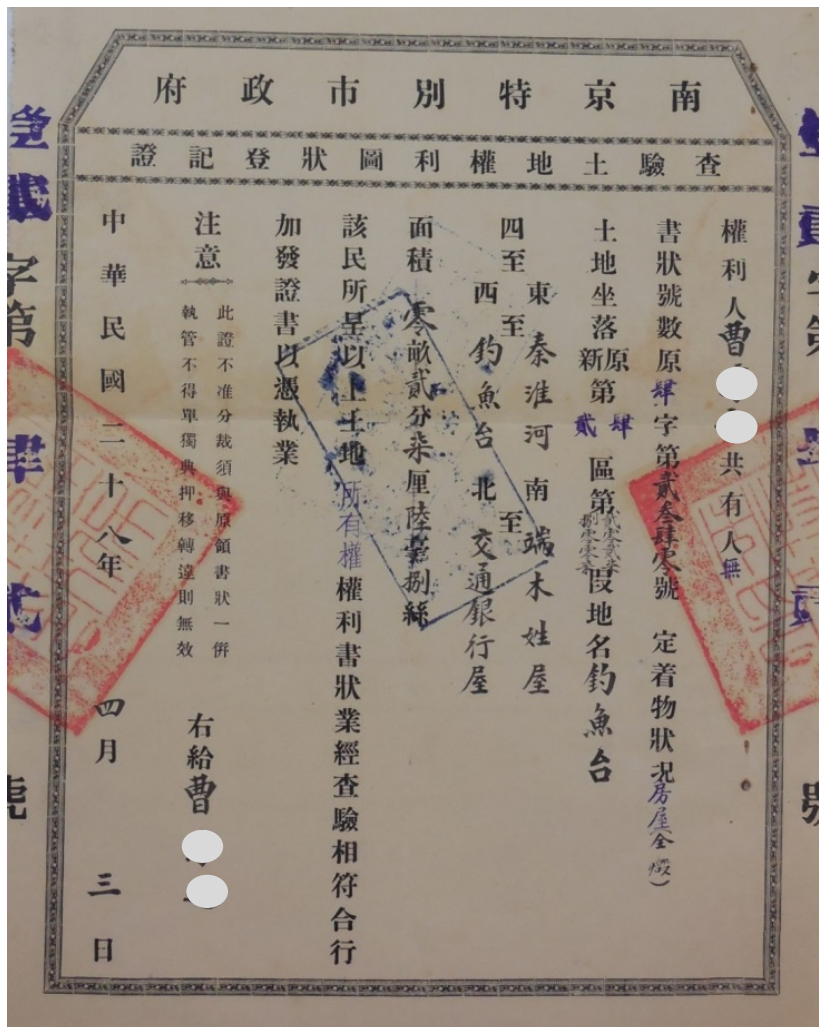 南京特別市政府
查驗土地權利圖狀登記證
權利人曹 共有人無
書狀號數原肆字第貳叁肆零號 定着物狀况房屋全燬)
土地坐落原第肆區第段地名釣魚台
新 貳
四至東至秦淮河南至端木姓屋
西至釣魚台北至交通銀行屋
面積零畝貳分柒厘陸毫捌絲
該民所呈以上土地所有權權利書狀業經查驗相符合行
加發證書以憑執業
注意
此證不准分裁須與原領書狀一併
執管不得單獨典押移轉違則無效
右給曹
中華民國二十八年四月三日
字第肆貳號